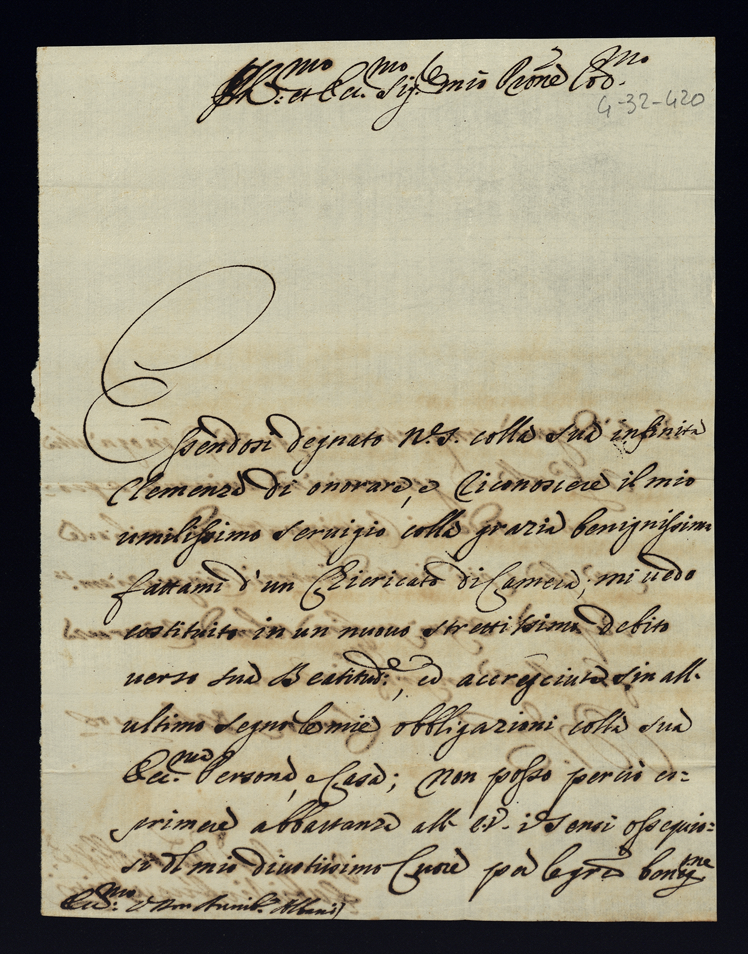 Ill.mo et Ecc.mo Sig.re mio Prõne Col.mo
4-32-420
Essendosi degnato N.o S. colla sua infinita
Clemenza di onorare, e riconoscere il mio
umilissimo servigio colla grazia benignissima
fattami d'un Chiericato di Camera, mi vedo
costituito in un nuovo strettissimo debito
verso sua Beatitud.e, ed accresciute sin all'
ultimo segno le mie obbligazioni colla sua
Ecc.ma Persona, e Casa; Non posso perciò es=
primere abbastanza all' E.V. i sensi ossequio=
si del mio divotissimo Cuore per le
Ecc.mo Annib. Albani